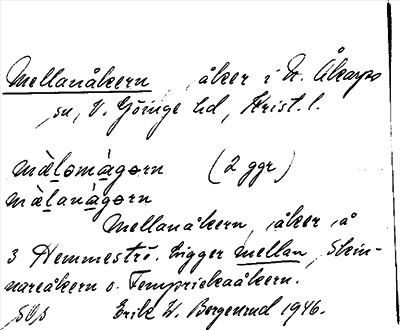 Mellanåkern, åker i N. Åkarps
sn, V. Göinge hd, Krist. l.
mὰlomàgorn (2 ggr)
mὰlanàgorn
Mellanåkern, åker å
3 Hemmeströ. Ligger mellan Skin-
nareåkern o. Tempriekaåkern.
Erik W. Bergenrud 1946.